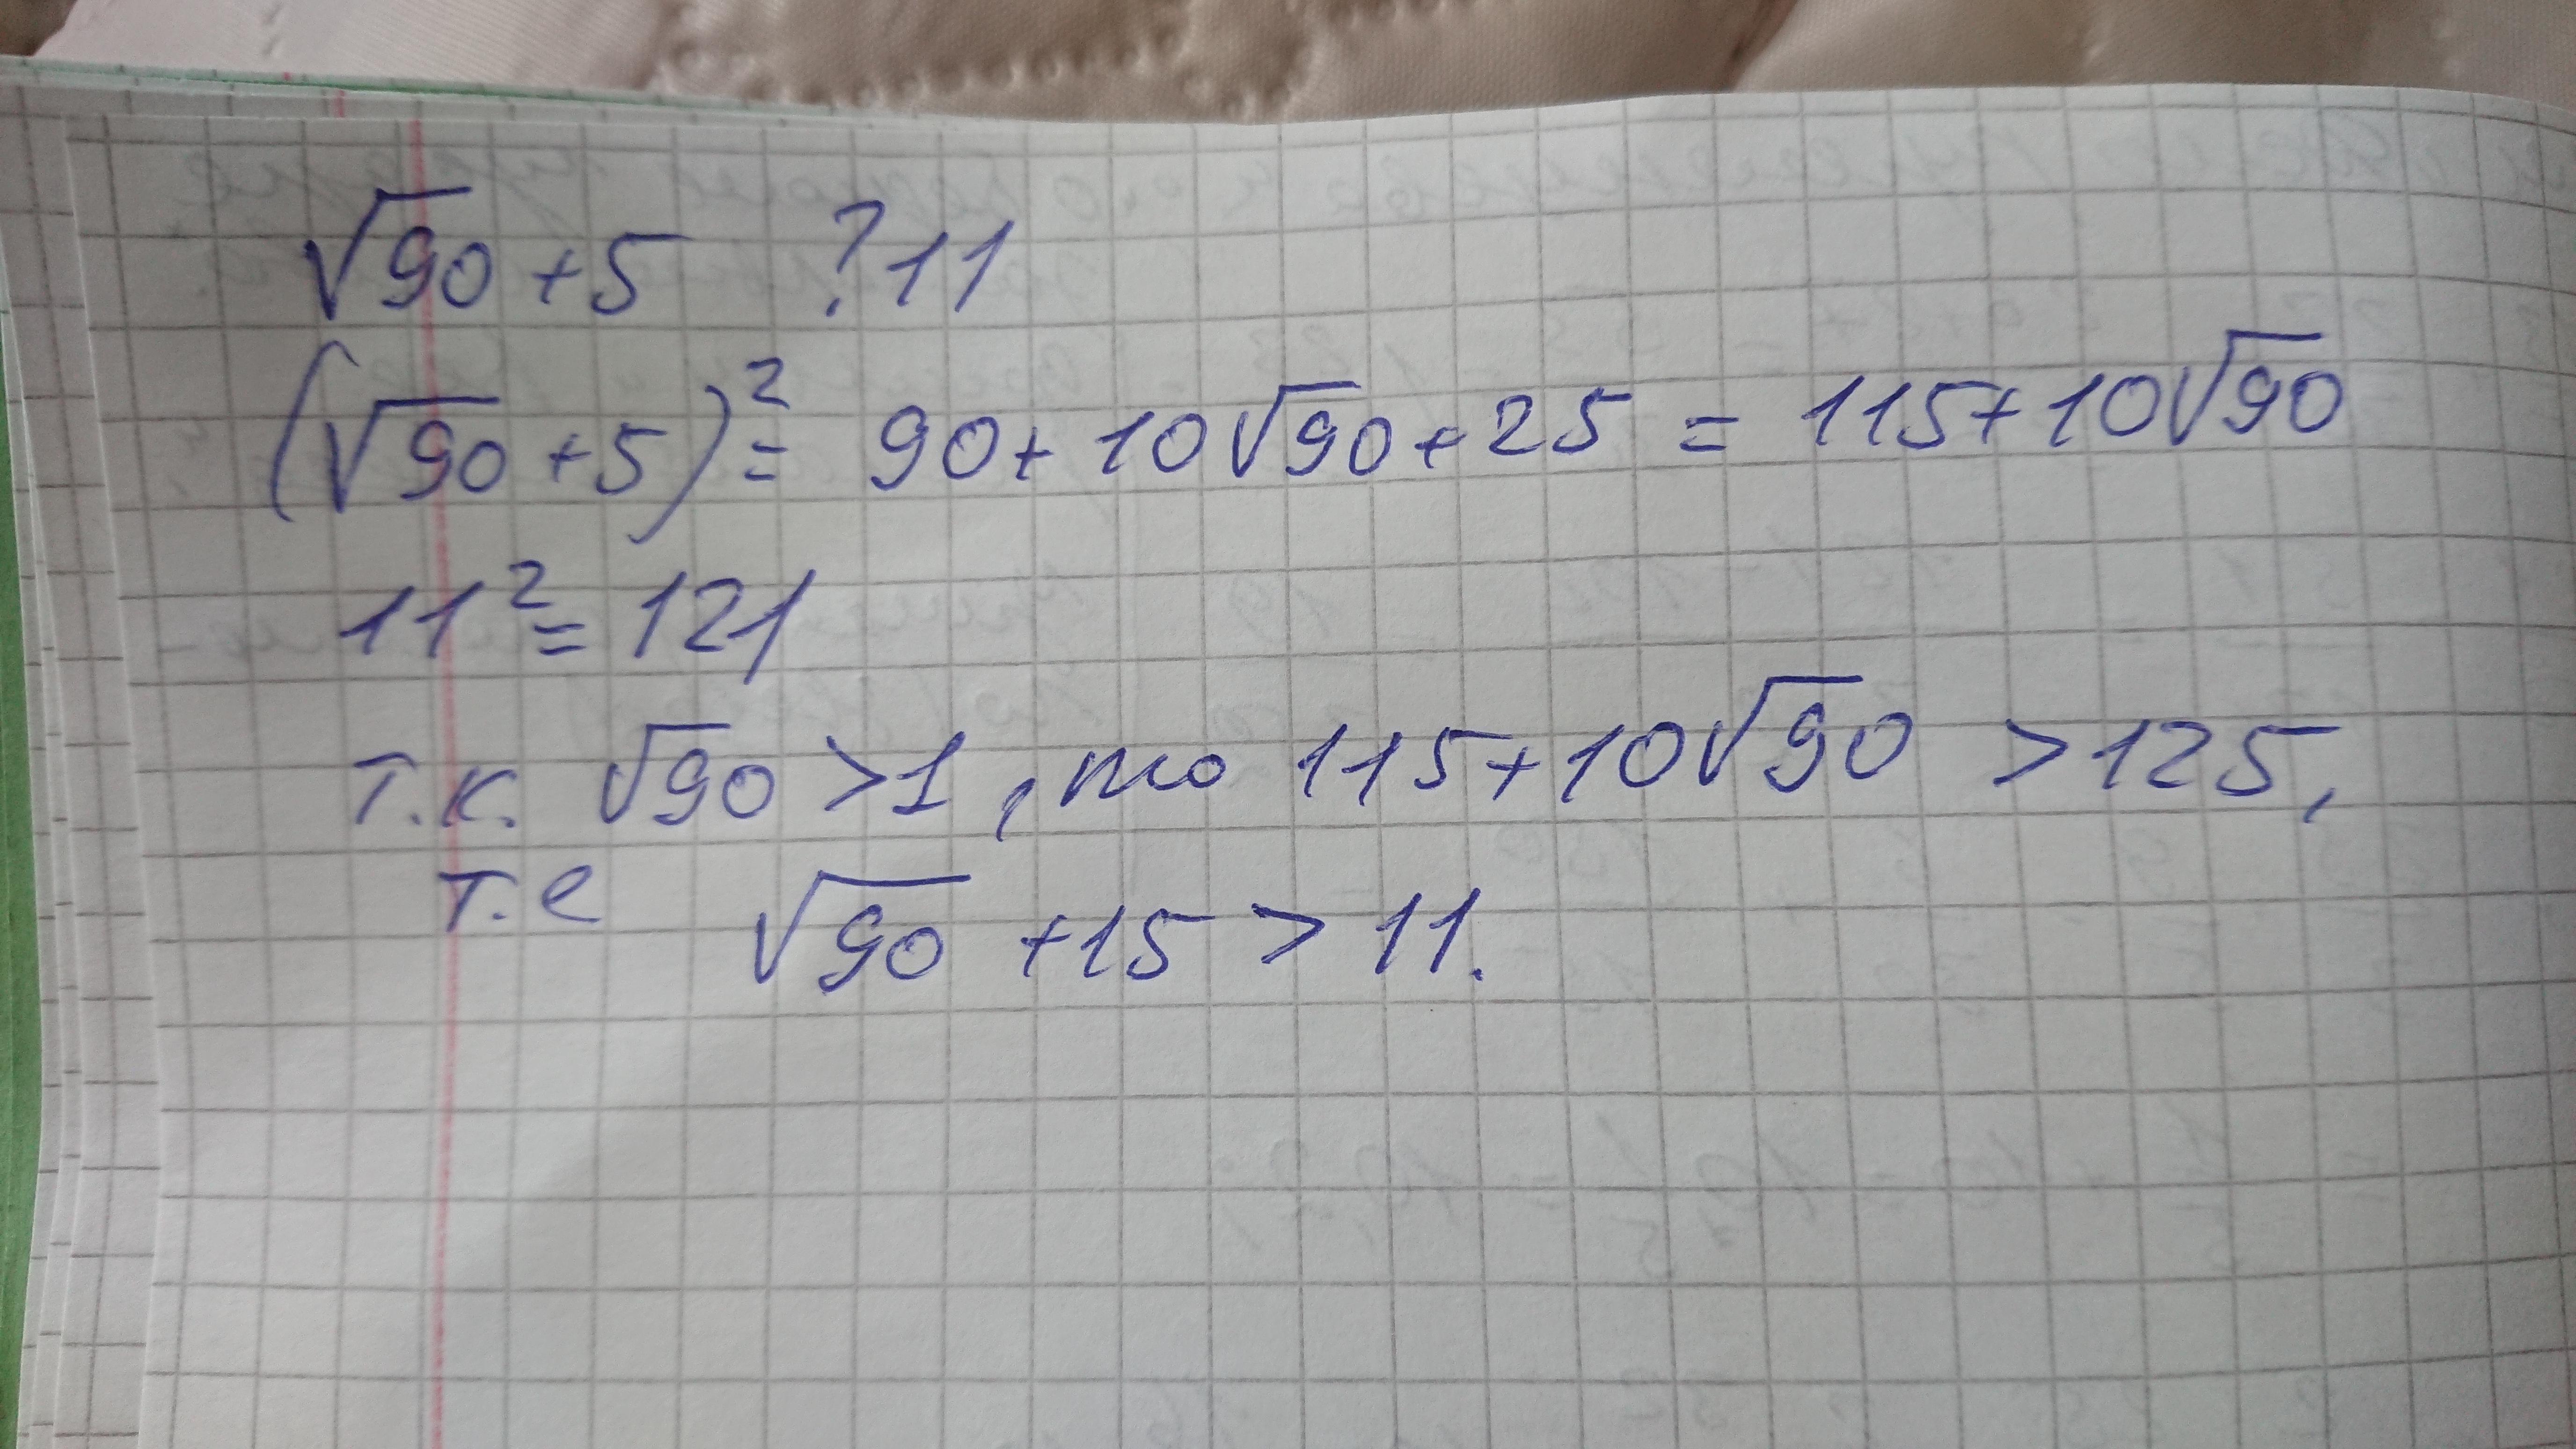 √90 + 5 ? 11
(√90 + 5)² = 90 + 10√90 + 25 = 115 + 10√90
11² = 121
т.к. √90 > 1, то 115 + 10√90 > 125,
т.е √90 + 15 > 11.